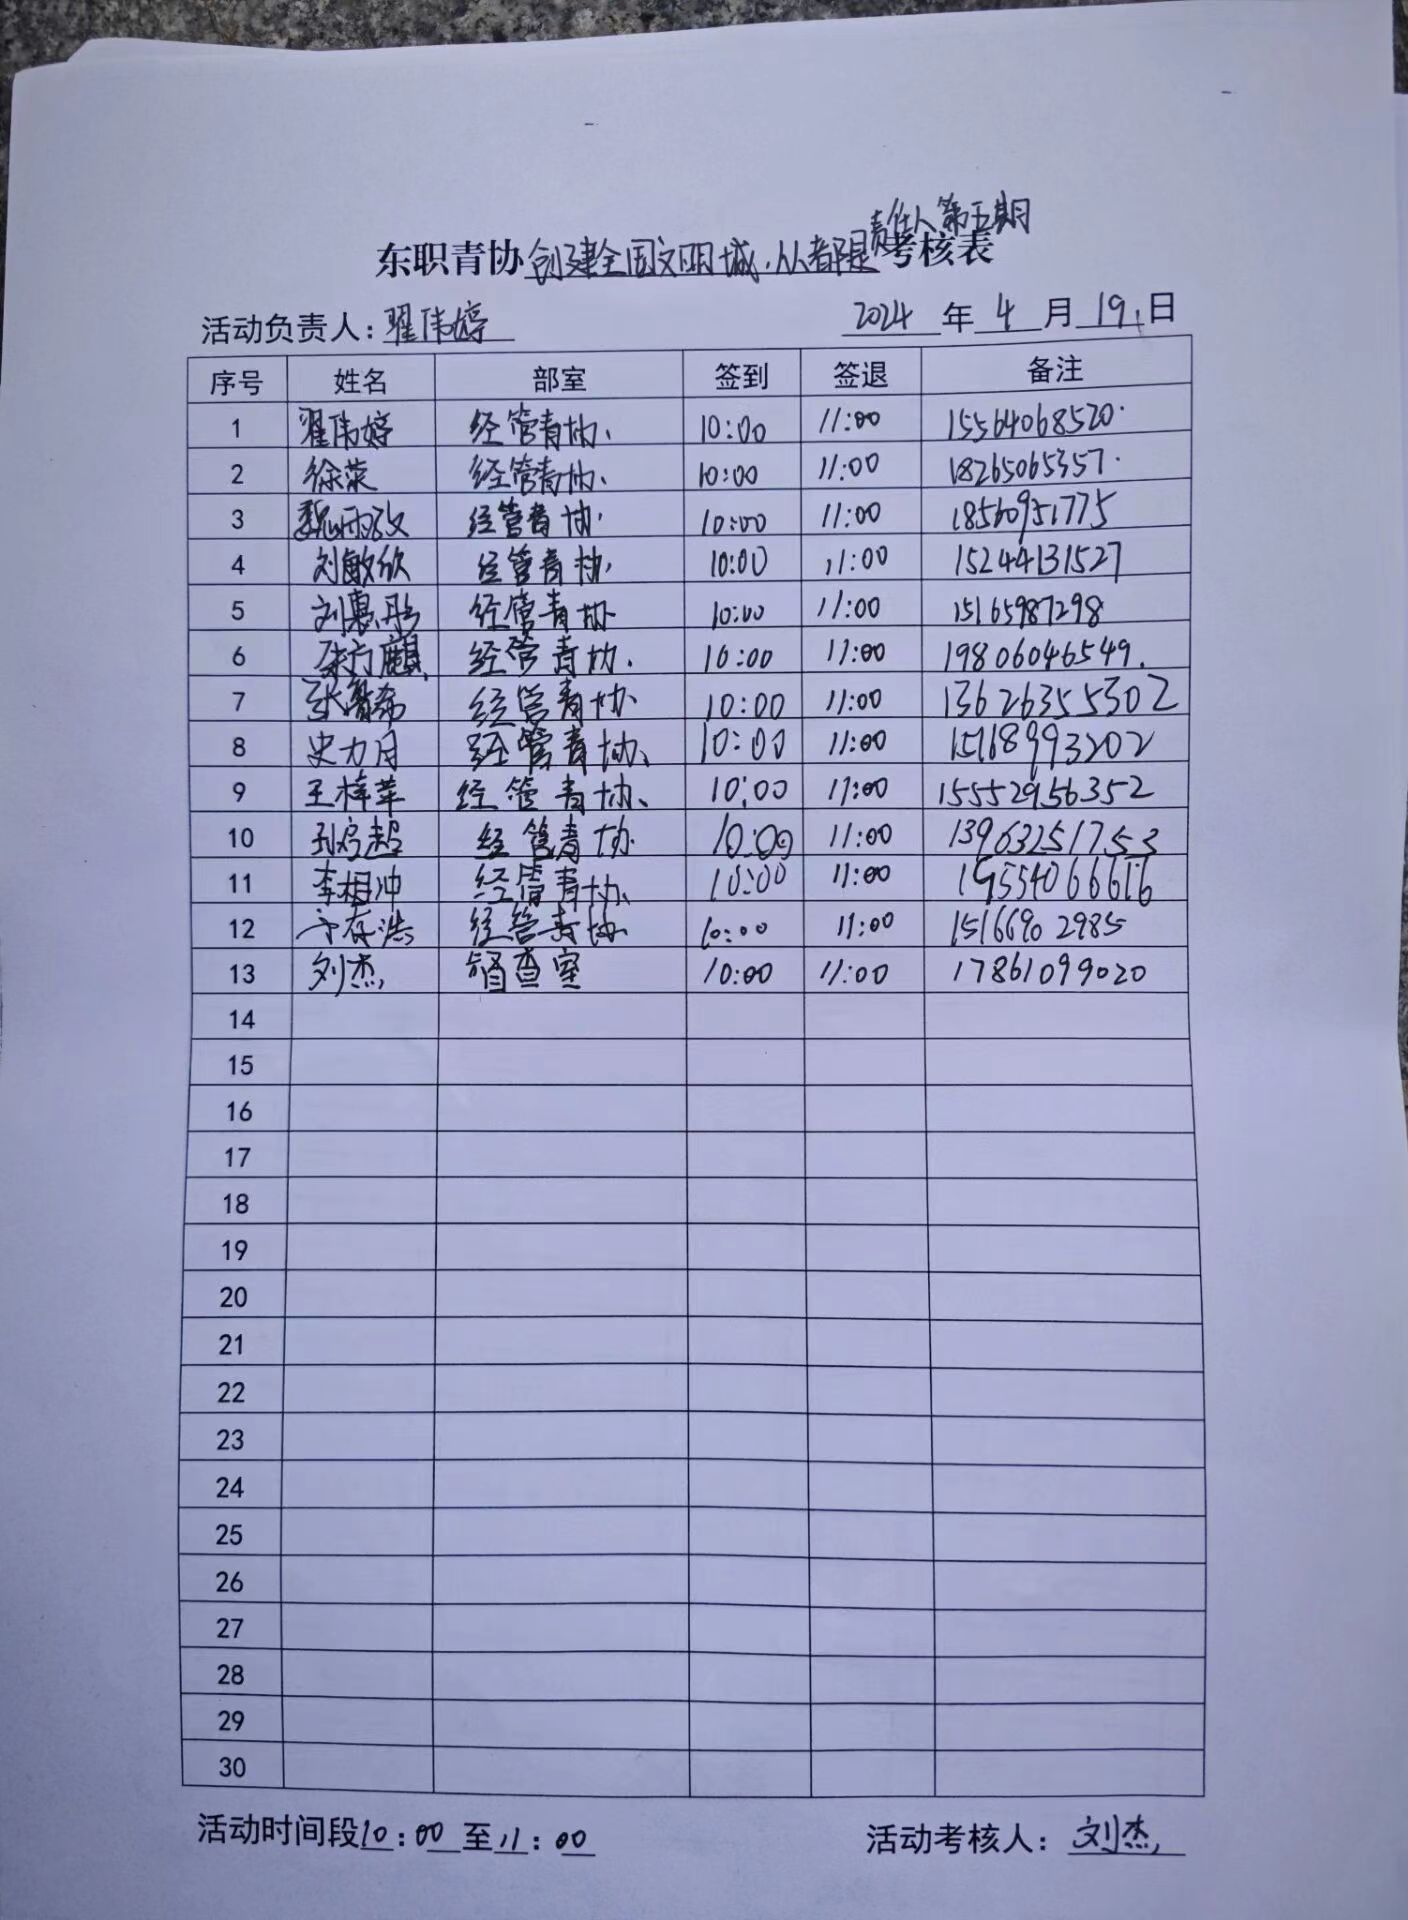 责任人第五期
东职青协创建全国文明城,从都是考核表
活动负责人:翟伟婷 2024年4月19日
序号 姓名 部室 签到 签退 备注
1 翟伟婷 经管青协 10:00 11:00 15564068520
2 徐荣 经管青协 10:00 11:00 18265065357
3 魏雨孜 经管青协 10:00 11:00 18560951775
4 刘敏欣 经管青协 10:00 11:00 15244131527
5 刘惠彤 经管青协 10:00 11:00 15165987298
6 经管青协 10:00 11:00 19806046549
7 张 希 经管青协 10:00 11:00 13626355302
8 史力月 经管青协 10:00 11:00 15168993202
9 王梓苹 经管青协 10:00 11:00 15552956352
10 孙启超 经管青协 10:00 11:00 13963251753
11 李相冲 经管青协 10:00 11:00 19554066616
12 存浩 经管青协 10:00 11:00 15166902985
13 刘杰 督查室 10:00 11:00 17861099020
14
15
16
17
18
19
20
21
22
23
24
25
26
27
28
29
30
活动时间段10:00至11:00 活动考核人:刘杰